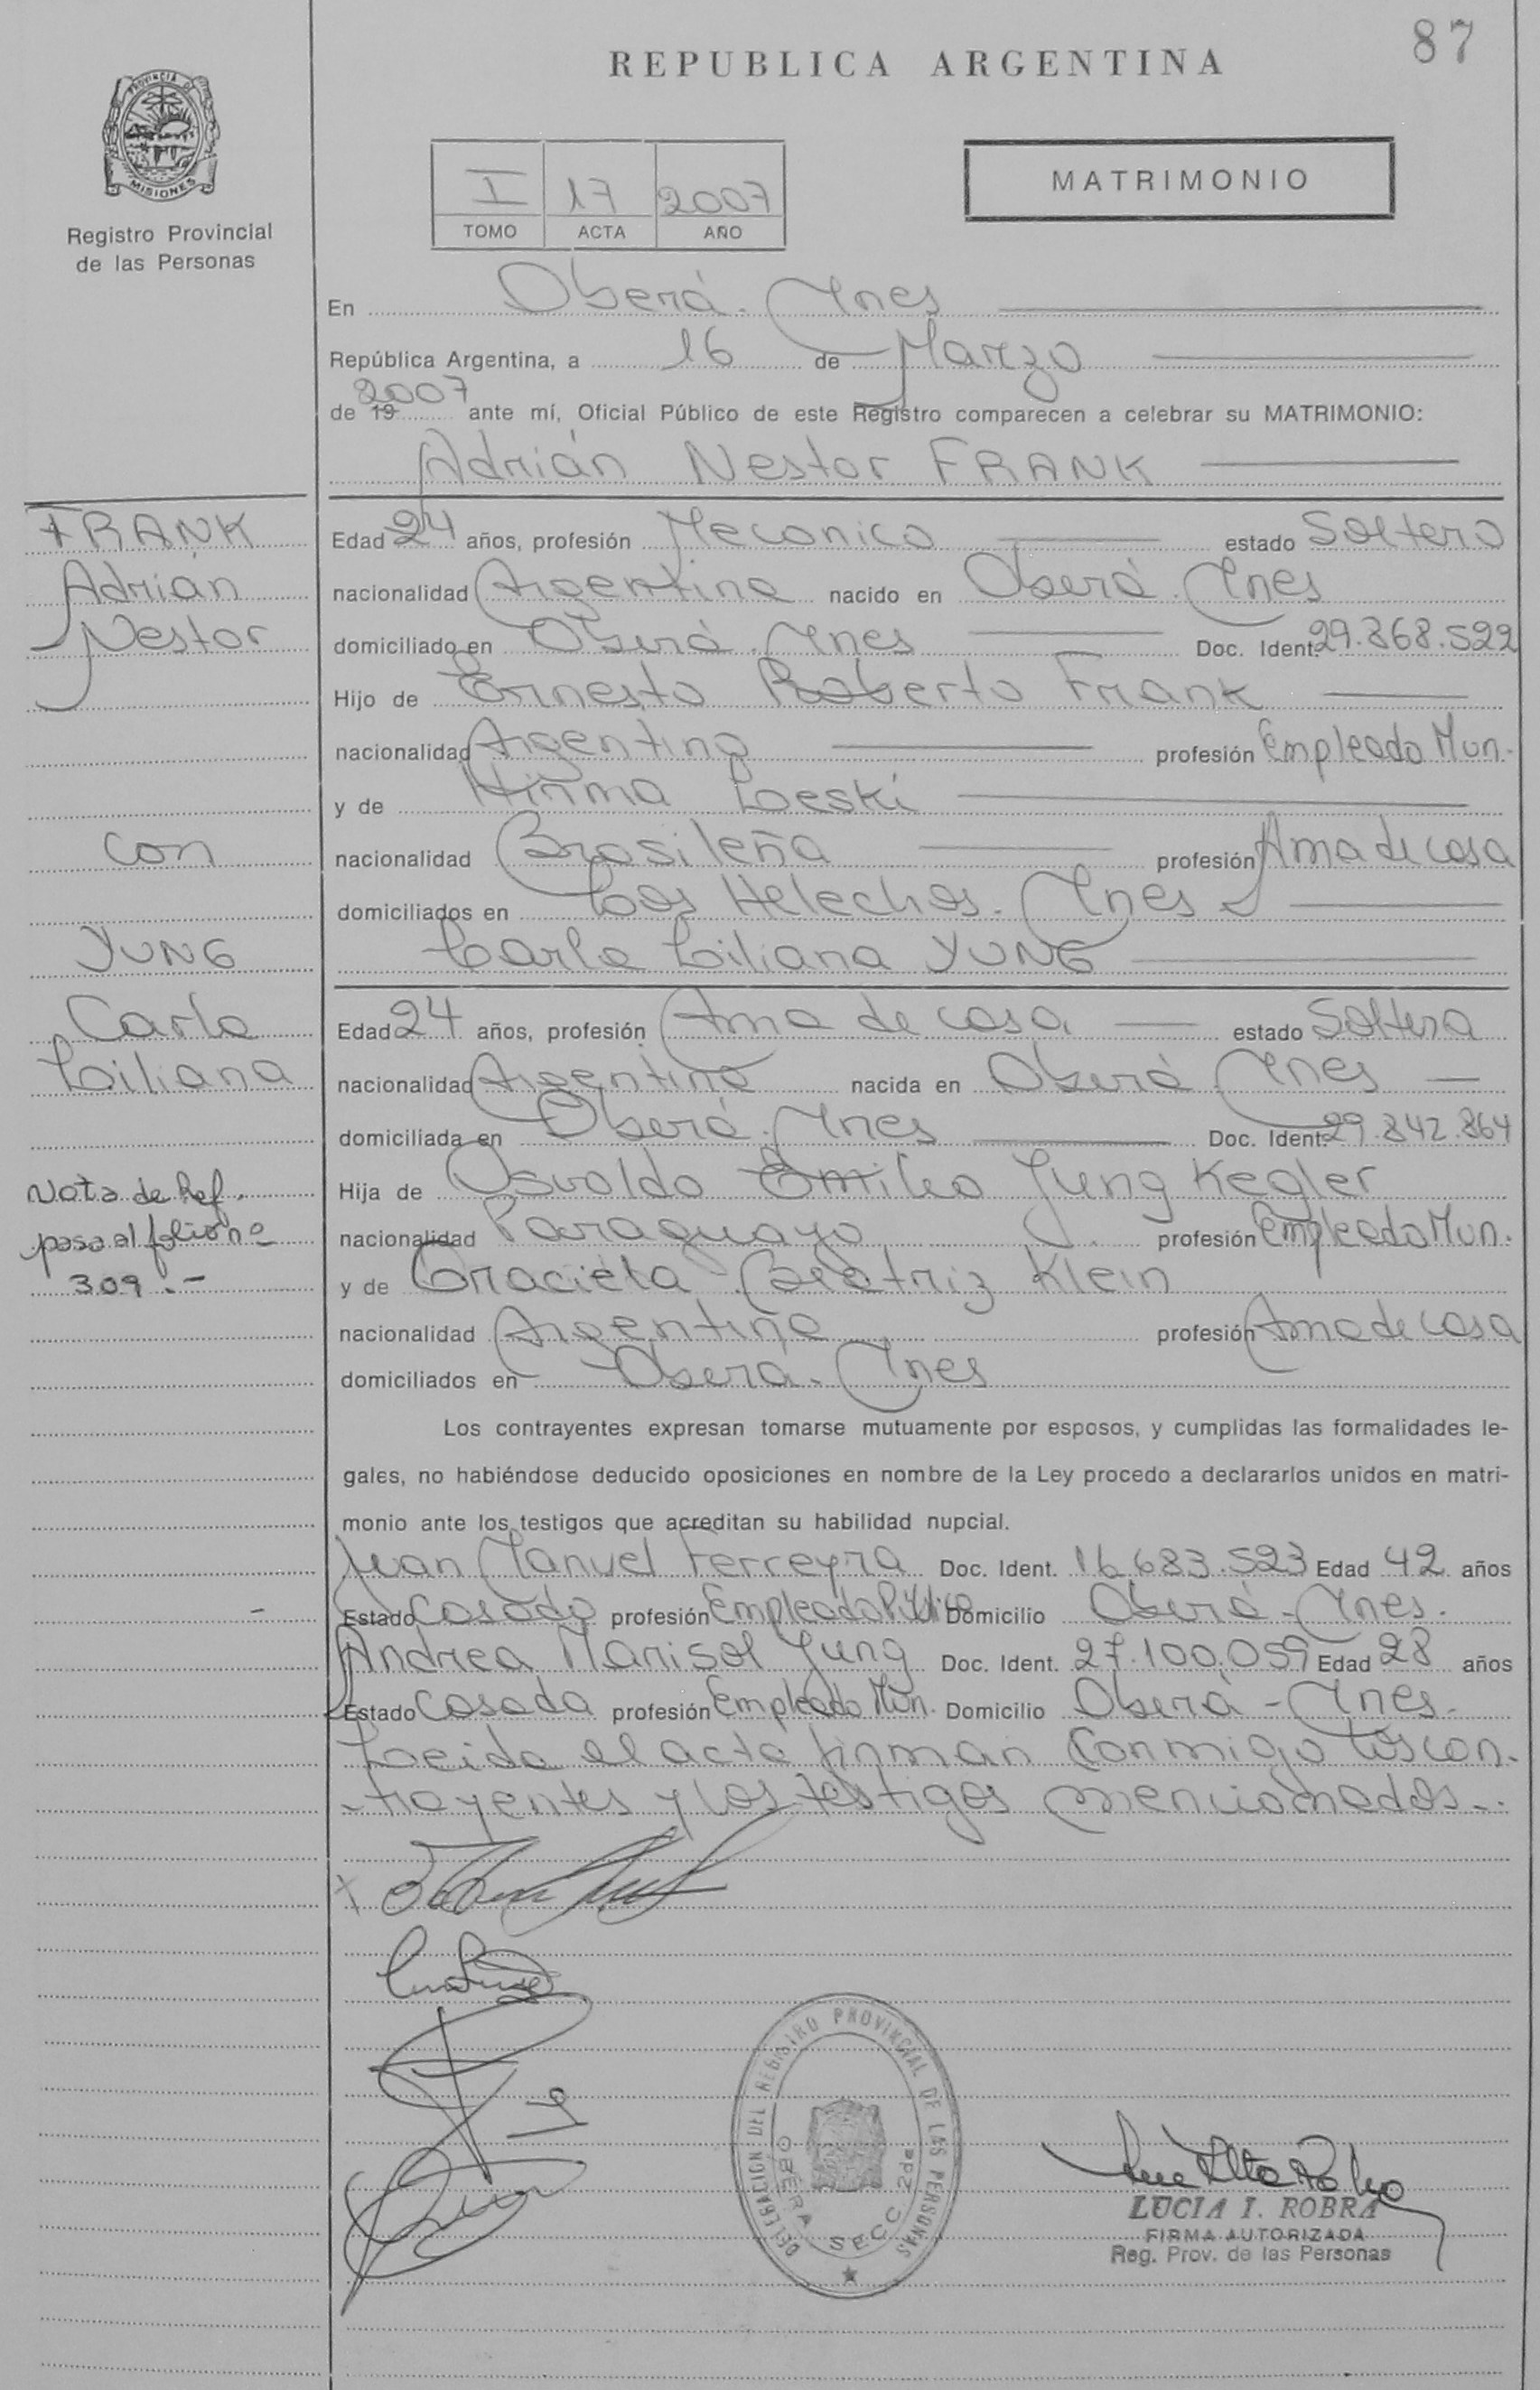 87
REPUBLICA ARGENTINA
PROVINCIA DE
MISIONES
Registro Provincial
de las Personas
I 17 2007
TOMO ACTA AÑO
MATRIMONIO
En Oberá. Mnes
República Argentina, a 16 de Marzo
de 19 2007 ante mí, Oficial Público de este Registro comparecen a celebrar su MATRIMONIO:
Adrián Nestor FRANK
FRANK
Adrián
Nestor
con
YUNG
Carla
Liliana
Nota de Ref.
pasa al folio nº
309.-
Edad 24 años, profesión Mecanico estado Soltero
nacionalidad Argentina nacido en Oberá. Mnes
domiciliado en Oberá. Mnes Doc. Ident. 29.868.522
Hijo de Ernesto Roberto Frank
nacionalidad Argentina profesión Empleado Mun.
y de Hirma Loeski
nacionalidad Brasileña profesión Ama de casa
domiciliados en Los Helechos. Mnes
Carla Liliana YUNG
Edad 24 años, profesión Ama de casa estado Soltera
nacionalidad Argentina nacida en Oberá. Mnes
domiciliada en Oberá. Mnes Doc. Ident. 29.842.864
Hija de Osvaldo Emilio Jung Kegler
nacionalidad Paraguaya profesión Empleado Mun.
y de Graciela Beatriz Klein
nacionalidad Argentina profesión Ama de casa
domiciliados en Oberá. Mnes
Los contrayentes expresan tomarse mutuamente por esposos, y cumplidas las formalidades le-
gales, no habiéndose deducido oposiciones en nombre de la Ley procedo a declararlos unidos en matri-
monio ante los testigos que acreditan su habilidad nupcial.
Juan Manuel Ferreyra Doc. Ident. 16.683.523 Edad 42 años
Estado Casado profesión Empleado Público Domicilio Oberá - Mnes.
Andrea Marisol Jung Doc. Ident. 27.100.059 Edad 28 años
Estado Casada profesión Empleado Mun. Domicilio Oberá - Mnes.
Leida el acta firman conmigo los con-
-trayentes y los testigos mencionados.-
DELEGACION DEL REGISTRO PROVINCIAL DE LAS PERSONAS
OBERA SECC. 2da
LUCIA I. ROBRA
FIRMA AUTORIZADA
Reg. Prov. de las Personas